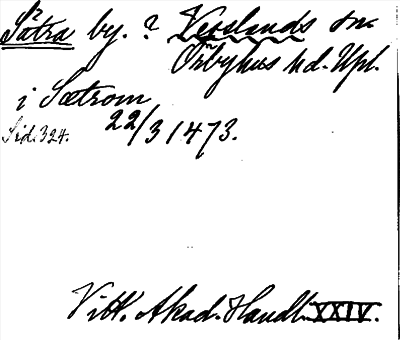 Sätra by. ? Vendlands sn
Örbyhus hd. Upl.
i Sætrom
Sid. 324. 22/3 1473.
Vitt. Akad. Handl. XXIV.